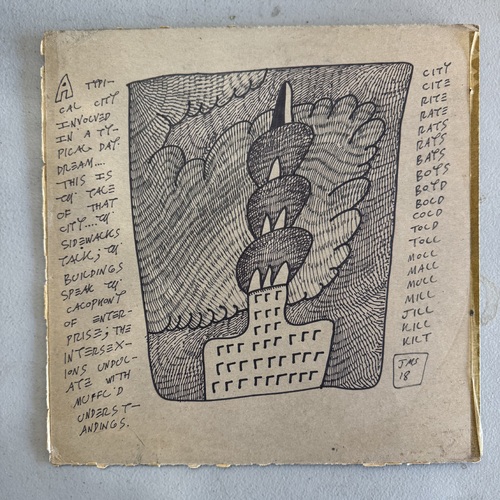 A TYPI-
CAL CITY
INVOLVED
IN A TY-
PICAL DAY
DREAM....
THIS IS
TH' TALE
OF THAT
CITY....TH'
SIDEWALKS
TALK; TH'
BUILDINGS
SPEAK TH'
CACOPHONY
OF ENTER-
PRISE; THE
INTERSEX-
IONS UNDUL-
ATE WITH
MUFFL'D
UNDERST-
ANDINGS.
CITY
CITE
RITE
RATE
RATS
RAYS
BAYS
BOYS
BOYD
BOLD
COLD
TOLD
TOLL
MOLL
MALL
MULL
MILL
JILL
KILL
KILT
JMS
18